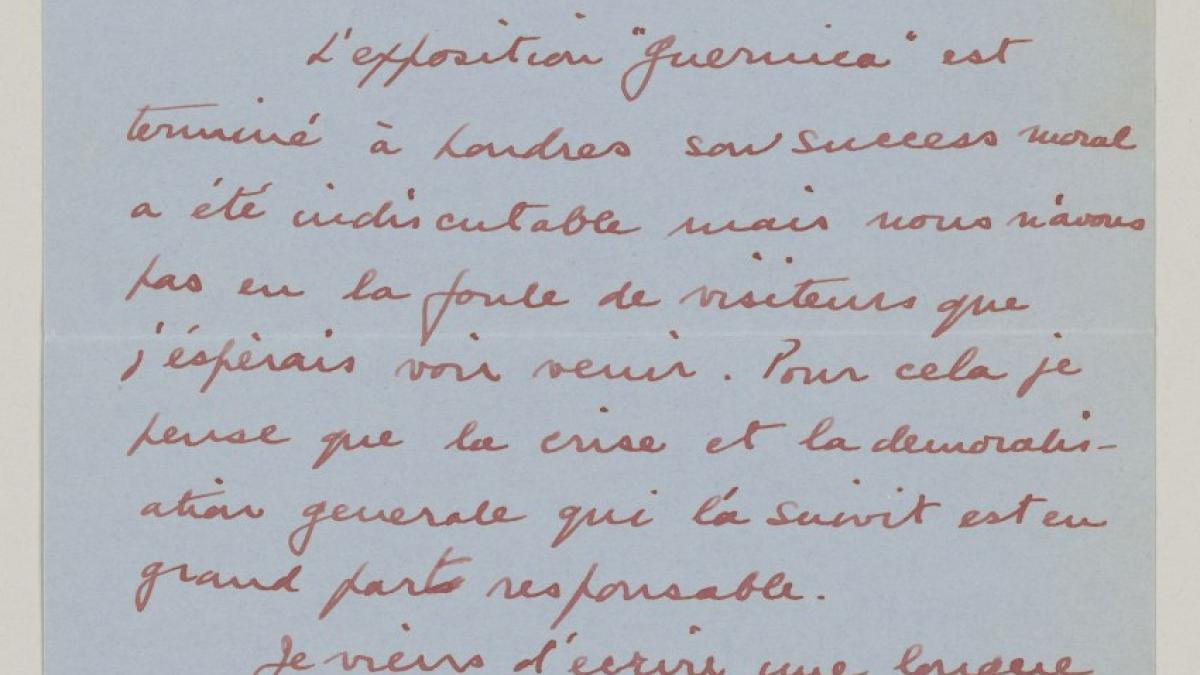 L'exposition "Guernica" est
terminé à Londres son success moral
a été indiscutable mais nous n'avons
pas eu la foule de visiteurs que
j'éspèrais voir venir. Pour cela je
pense que la crise et la demoralis-
ation generale qui l'a suivit est en
grand part responsable.
Je viens d'écrire une longue